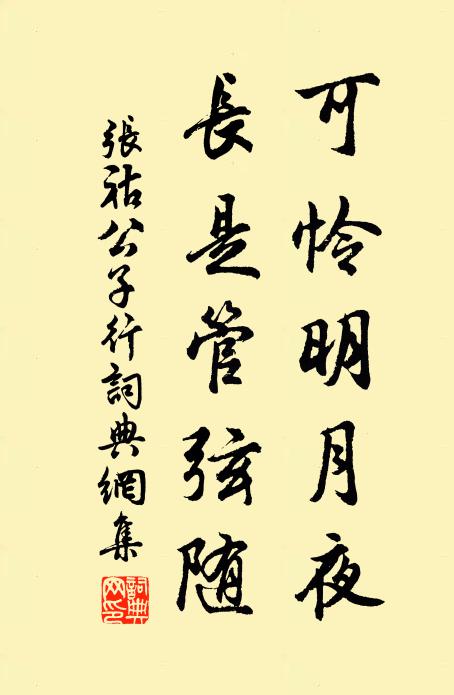 可怜明月夜
長是管弦随
張祜公子行詞典網集
詞典网印